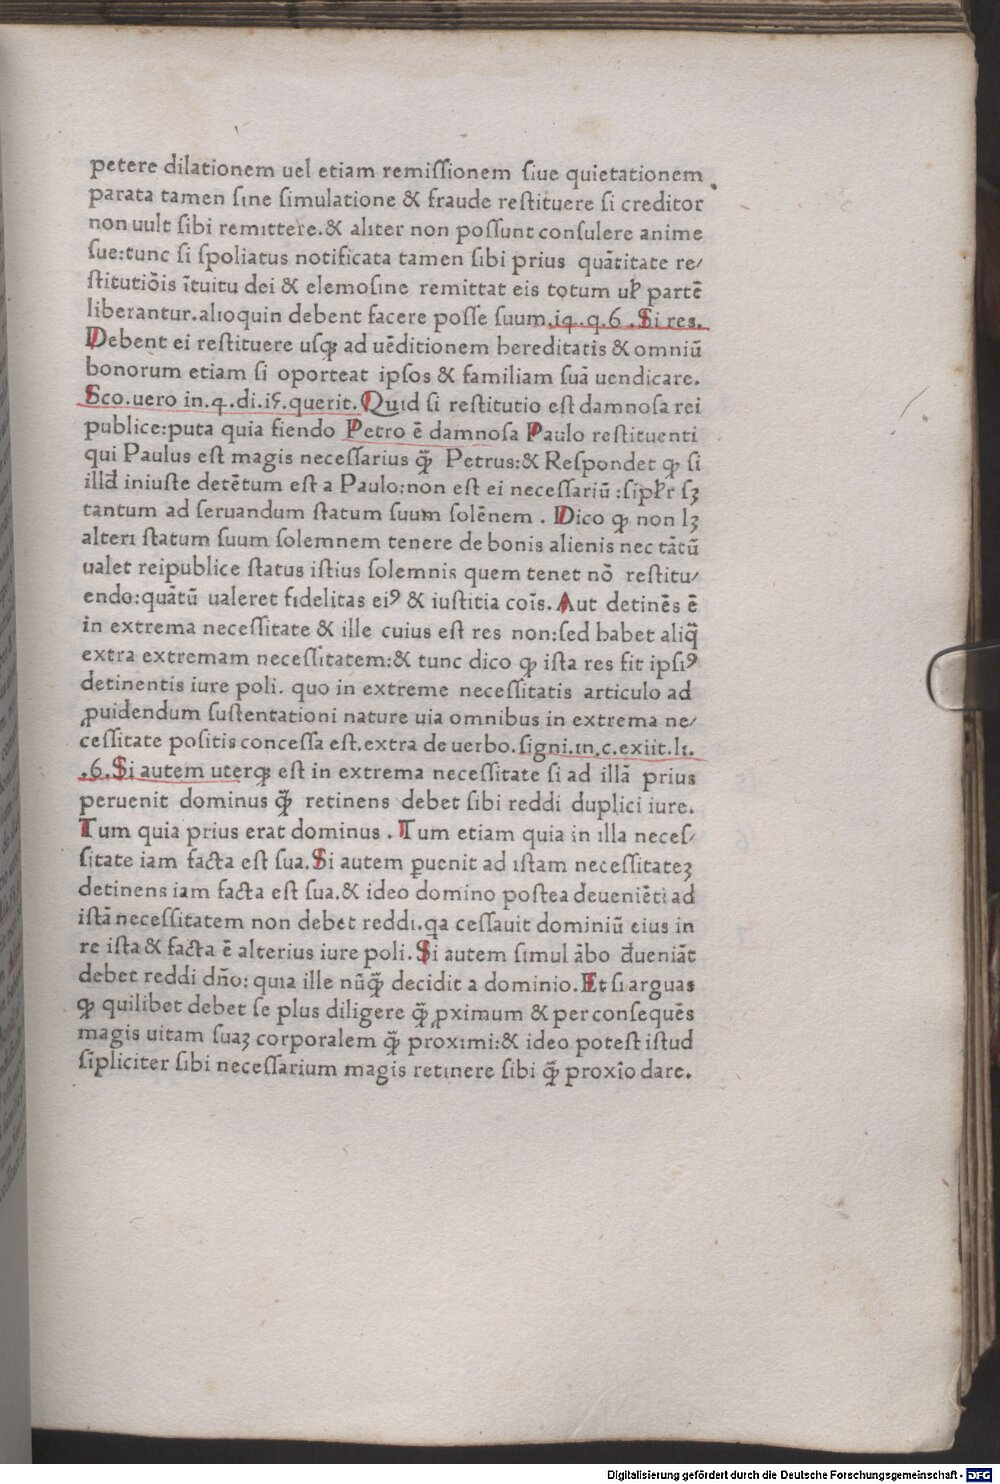 petere dilationem uel etiam remiſſionem ſiue quietationem
parata tamen ſine ſimulatione & fraude reſtituere ſi creditor
non uult ſibi remittere.& aliter non poſſunt conſulere anime
ſue:tunc ſi ſpoliatus notificata tamen ſibi prius quātitate re/
ſtitutiōis ītuitu dei & elemoſine remittat eis totum uꝉ partē
liberantur.alioquin debent facere poſſe ſuum.i4.q.6.Si res.
Debent ei reſtituere uſqꝫ ad uēditionem hereditatis & omniū
bonorum etiam ſi oporteat ipſos & familiam ſuā uendicare.
Sco.uero in.4.di.i5.querit.Quid ſi reſtitutio eſt damnoſa rei
publice:puta quia fiendo Petro ē damnoſa Paulo reſtituenti
qui Paulus eſt magis neceſſarius ꝙ̄ Petrus:& Reſpondet ꝙ ſi
illđ iniuſte detētum eſt a Paulo:non eſt ei neceſſariū :ſipꝉr ſꝫ
tantum ad ſeruandum ſtatum ſuum ſolēnem . Dico ꝙ non lꝫ
alteri ſtatum ſuum ſolemnem tenere de bonis alienis nec tātū
ualet reipublice ſtatus iſtius ſolemnis quem tenet nō reſtitu/
endo:quātū ualeret fidelitas eiꝰ & iuſtitia coīs.Aut detinēs ē
in extrema neceſſitate & ille cuius eſt res non:ſed habet aliq̄
extra extremam neceſſitatem:& tunc dico ꝙ iſta res fit ipſiꝰ
detinentis iure poli. quo in extreme neceſſitatis articulo ad
ꝓuidendum ſuſtentationi nature uia omnibus in extrema ne/
ceſſitate poſitis conceſſa eſt.extra de uerbo.ſigni.in.c.exiit.li.
.6.Si autem uterqꝫ eſt in extrema neceſſitate ſi ad illā prius
peruenit dominus ꝙ̄ retinens debet ſibi reddi duplici iure.
Tum quia prius erat dominus . Tum etiam quia in illa neceſ/
ſitate iam facta eſt ſua.Si autem ꝑuenit ad iſtam neceſſitateꝫ
detinens iam facta eſt ſua.& ideo domino poſtea deueniēti ad
iſtā neceſſitatem non debet reddi.qa ceſſauit dominiū eius in
re iſta & facta ē alterius iure poli.Si autem ſimul ābo đueniāt
debet reddi dn̄o: quia ille nūꝙ̄ decidit a dominio.Et ſi arguas
ꝙ quilibet debet ſe plus diligere ꝙ̄ ꝓximum & per conſequēs
magis uitam ſuaꝫ corporalem ꝙ̄ proximi:& ideo poteſt iſtud
ſīpliciter ſibi neceſſarium magis retinere ſibi ꝙ̄ proxīo dare.
Digitalisierung gefördert durch die Deutsche Forschungsgemeinschaft - DFG